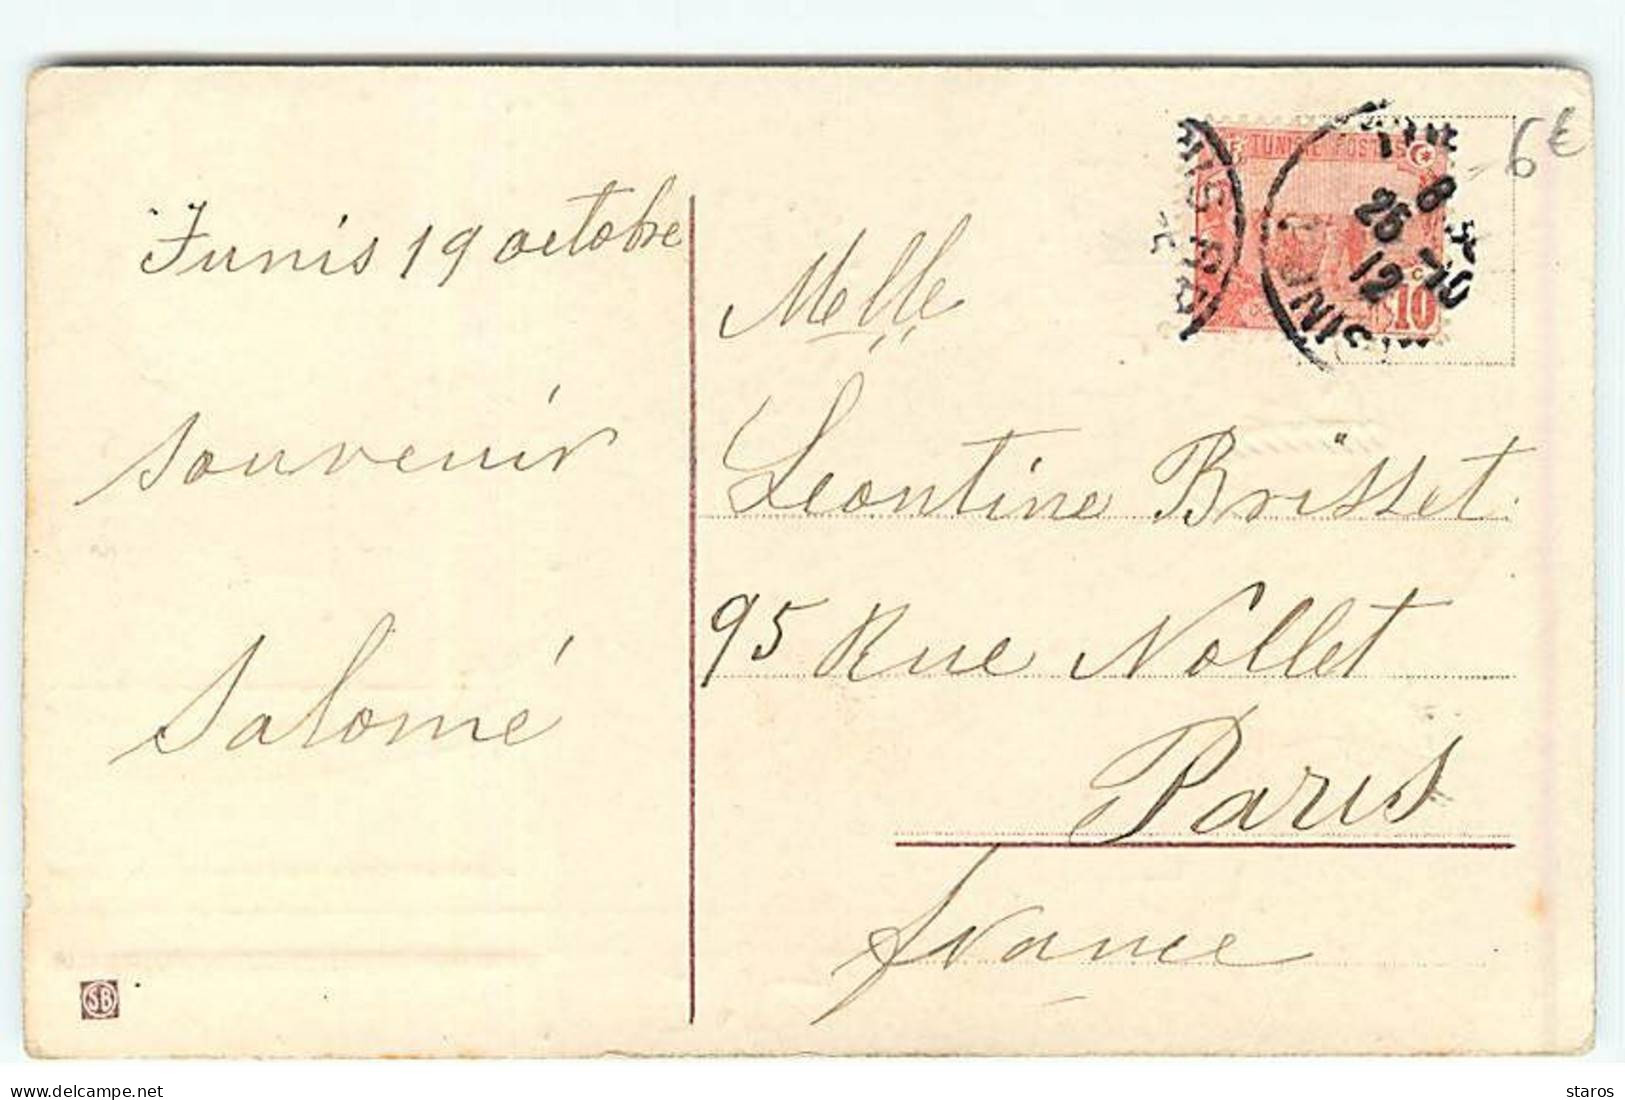 Tunis 19 octobre
souvenir
Salomé
SB
6€
TUNISIE POSTES
10
8
25
12
TUNIS
Melle
Leontine Brisset
95 Rue Nollet
Paris
France
delcampe.net
staros